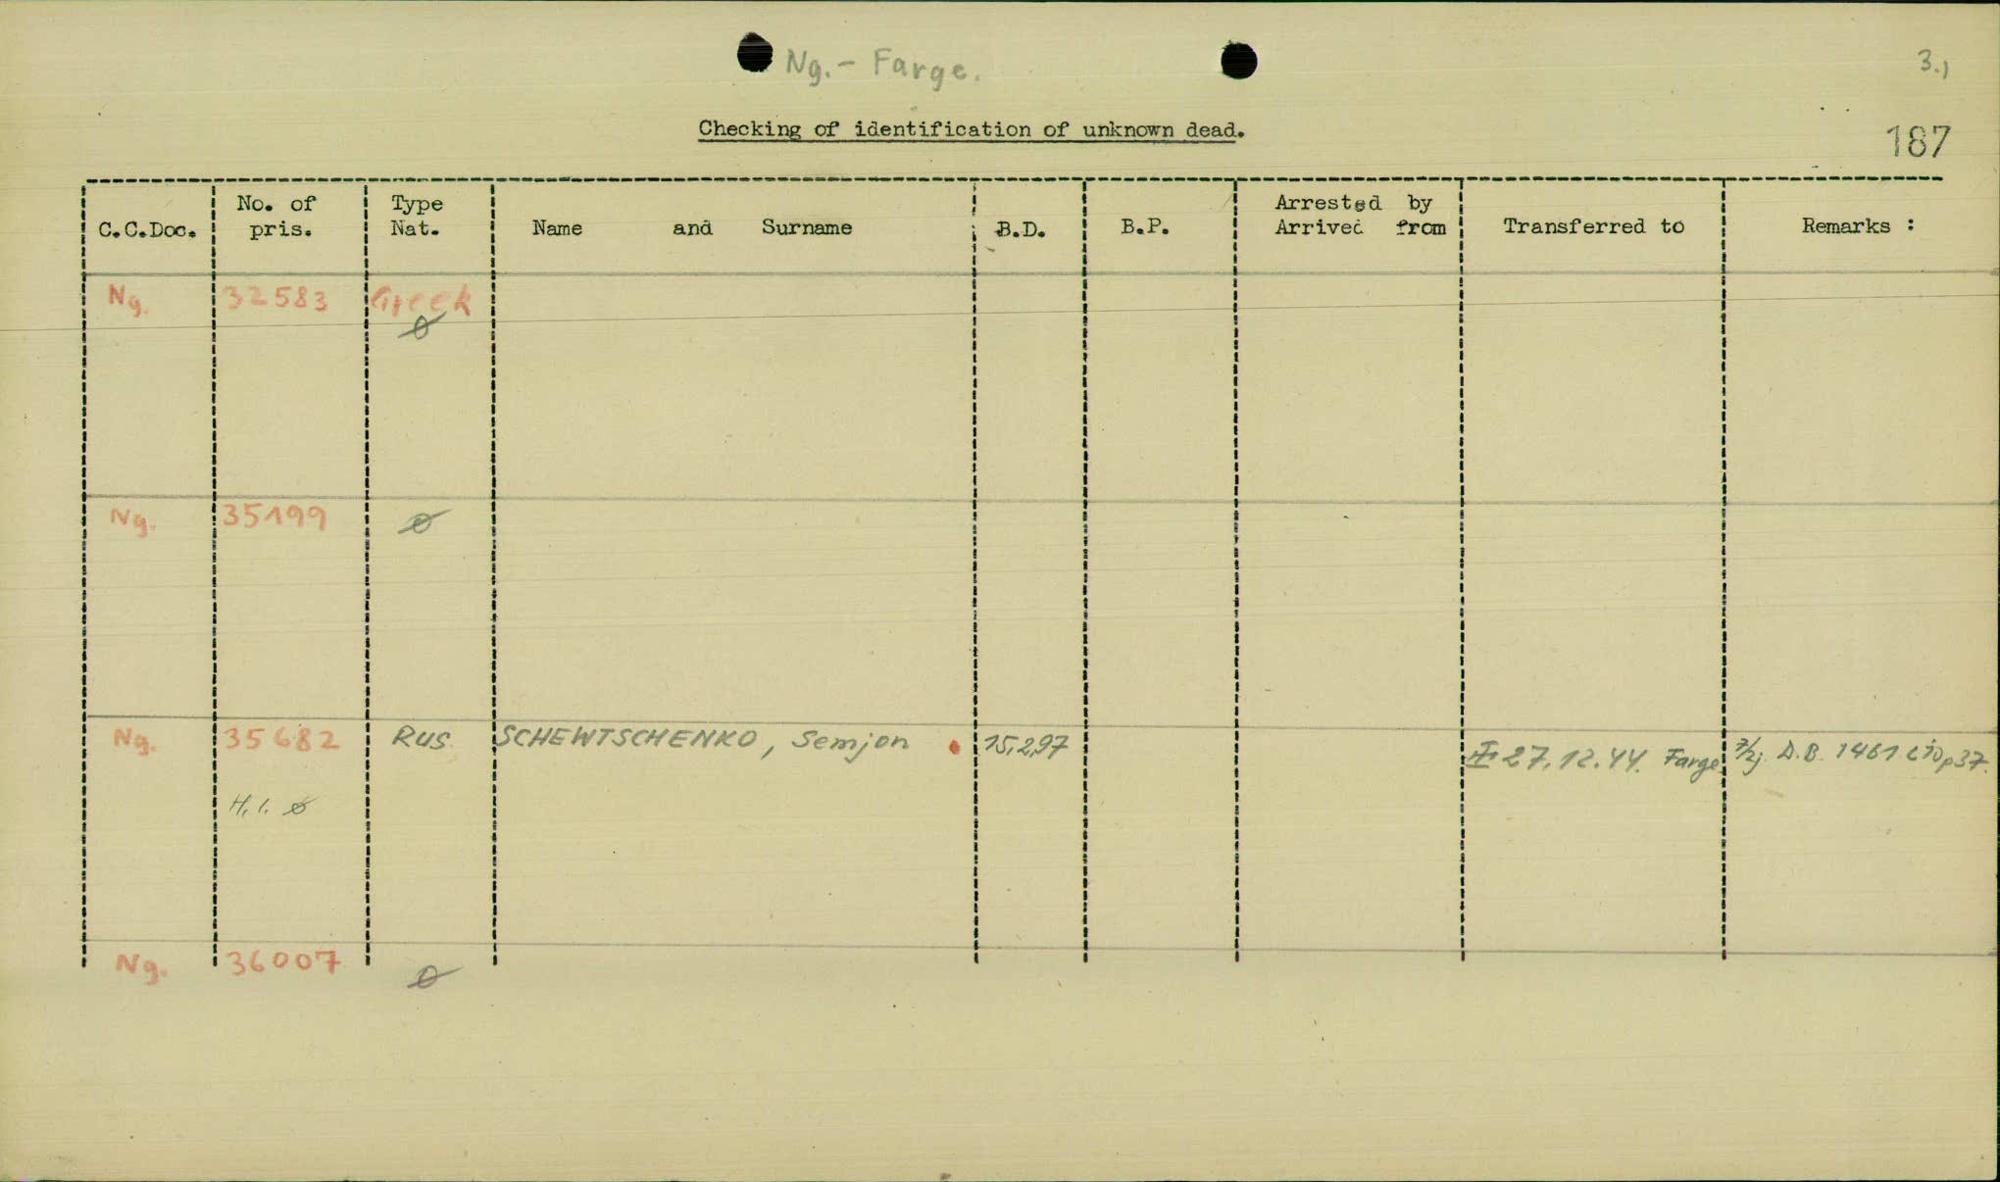 Ng. - Farge.
3.)
Checking of identification of unknown dead.
187
C.C.Doc. No. of pris. Type Nat. Name and Surname B.D. B.P. Arrested by Arrived from Transferred to Remarks :
Ng. 32583 Greek
ø
Ng. 35199 ø
Ng. 35682 RUS SCHEWTSCHENKO, Semjon 15.2.97 27.12.44. Farge D.B. 1461 p37.
H.I. ø
Ng. 36007 ø